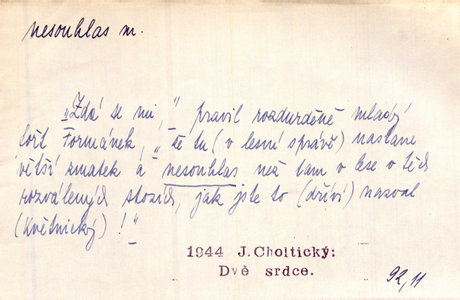 nesouhlas m.
„Zdá se mi,“ pravil rozdurděně mladý
lojt Formánek, „že tu (v lesní správě) nastane
větší zmatek a nesouhlas než tam v lese v těch
rozválených stozích, jak jste to (dříví) nazval
(Květnický)!“
1944 J.Choltický:
Dvě srdce.
92,11